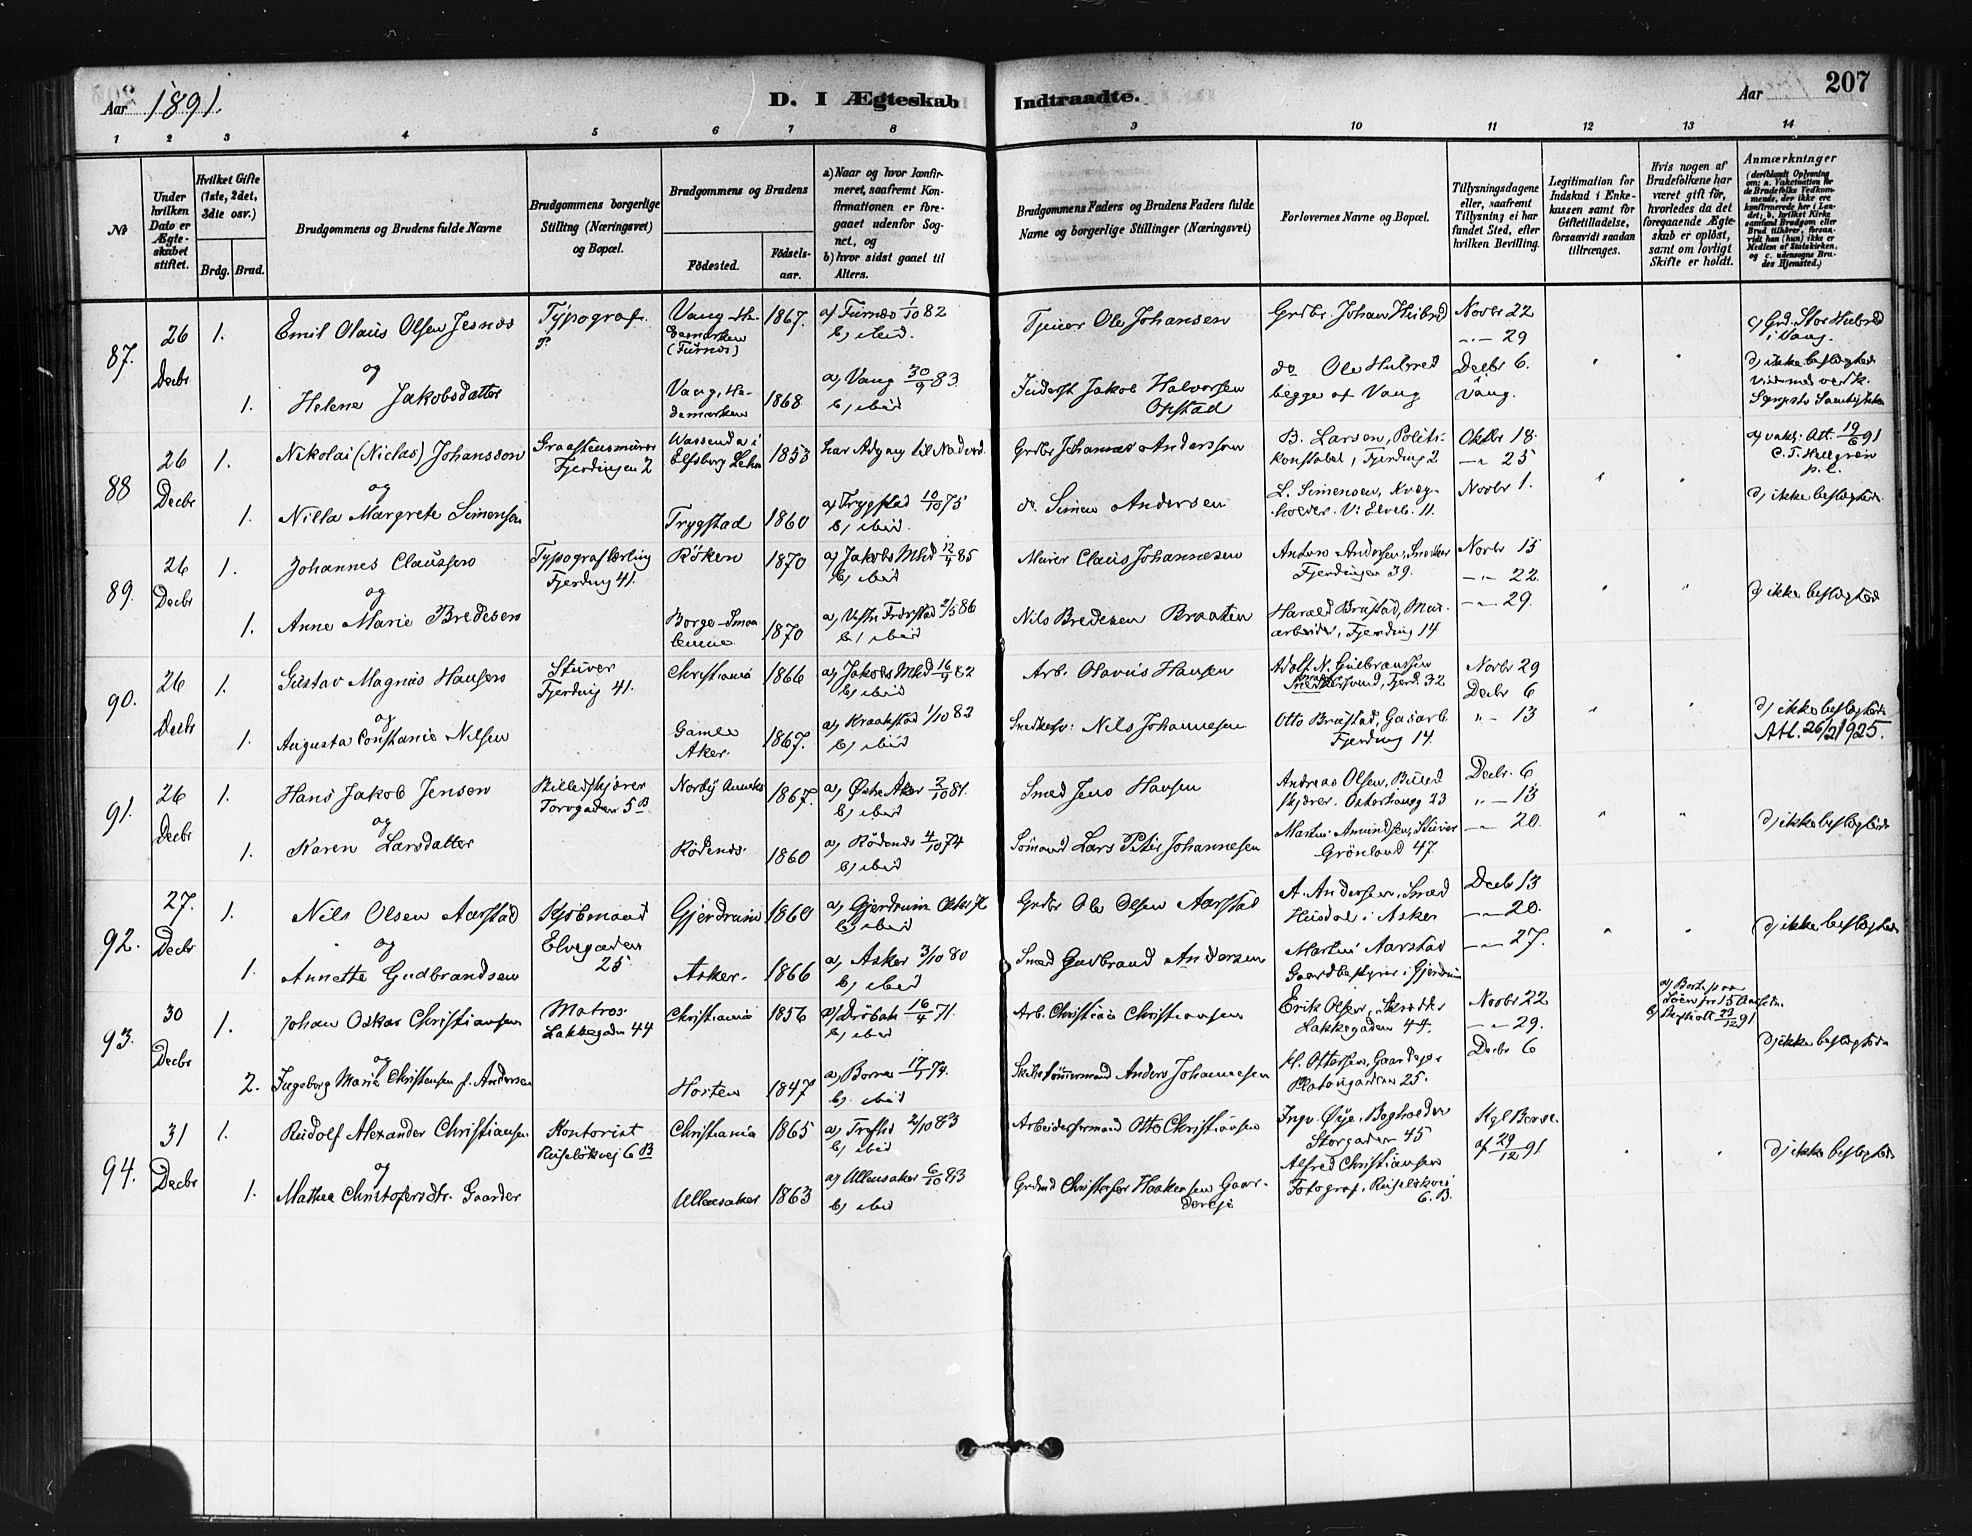 Aar 1891.
D. I Ægteskab Indtraadte.
Aar 207
1 2 3 4 5 6 7 8 9 10 11 12 13 14
№
Under hvilken Dato er Ægteskabet stiftet.
Hvilket Gifte (1ste, 2det, 3die osv.)
Brdg. Brud.
Brudgommens og Brudens fulde Navne
Brudgommens borgerlige Stilling (Næringsvei) og Bopæl.
Brudgommens og Brudens
Fødested. Fødselsaar.
a) Naar og hvor konfirmeret, saafremt Konfirmationen er foregaaet udenfor Sognet, og
b) hvor sidst gaaet til Alters.
Brudgommens Faders og Brudens Faders fulde Navne og borgerlige Stillinger (Næringsvei)
Forlovernes Navne og Bopæl.
Tillysningsdagene eller, saafremt Tillysning ei har fundet Sted, efter hvilken Bevilling.
Legitimation for Indskud i Enkekassen samt for Giftetilladelse, forsaavidt saadan tiltrænges.
Hvis nogen af Brudefolkene har været gift før, hvorledes da det foregaaende Ægteskab er opløst, samt om lovligt Skifte er holdt.
Anmærkninger
87. 26 Decbr 1. Emil Olaus Olsen Jesnæs Typograf. Vang Hedemarken (Furnæs) 1867. a) Furnæs 1/10 82 b) ibid. Tjener Ole Johansen Grdbr. Johan Hubred Novbr 22
" - 29 c) Grd. Stor Hubred i Vang.
og
1. Helene Jakobsdatter Vang, Hedemarken 1868 a) Vang 30/9 83. b) ibid Inderst Jakob Halvorsen Opstad do Ole Hubred begge af Vang Decbr 6. Vang. d) ikke beslægtede
88 26 Decbr 1. Nikolai (Niclas) Johansson Graastensmurer Fjerdingen 2 Wassenda i Elfsborg Lehn 1853 har Adgang til Nadverd. Grdbr Johannes Andersson B. Larsen, Politikonstabel, Fjerding 2 Oktbr 18. - " 25 a) vakc. Att. 19/6 91
og
1. Nilla Margrete Simensen Trygstad 1860 a) Trygstad 10/10 75 b) ibid. do. Simen Andersen L. Simensen, Kvægholder. V: Elveb. 11. Novbr 1. d) ikke beslægtede
89. 26 Decbr 1. Johannes Claussen Typograflærling Fjerding 41. Røken 1870 a) Jakobs Mhd 12/4 85 b) ibid Murer Claus Johannesen Anton Andersen, Snedker Fjerdingen 39. Novbr 15 - " - 22.
og
1. Anne Marie Bredesen Borge Smaalenene 1870 a) Vestre Fredrstad 2/5 86 b) ibid Nils Bredesen Braaten Harald Brustad, Murarbeider, Fjerding 14 - " 29. d) ikke beslægtede
90. 26 Decbr 1. Gustav Magnus Hansen Stuver Fjerding 41. Christiania 1866 a) Jakobs Mhd 16/4 82 b) ibid Arb. Olavus Hansen Adolf N. Gulbrandsen Fjerd. 32 Novbr 29 Decbr 6
og
1. Augusta Constance Nilsen Gamle Aker. 1867. a) Kraakstad 1/10 82 b) ibid Snedkersv: Nils Johannesen Otto Brustad, Gasarb. Fjerding 14. " - 13 d) ikke beslægtede
Att. 26/2 1925.
91. 26 Decbr 1. Hans Jakob Jensen Billedskjærer Torvgaden 5 B Norby Anneks 1867. a) Østre Aker 2/10 81. b) ibid Smed Jens Hansen Andreas Olsen, Billedskjærer. Osterhausg 23 Decbr. 6 " - 13
og
1. Karen Larsdatter Rødenæs. 1860 a) Rødenæs 4/10 74 b) ibid Sømand Lars Peter Johannesen Martin Amundsen, Stuver Grønland 47 - " 20. d) ikke beslægtede
92. 27. Decbr 1. Nils Olsen Aarstad Kjøbmand Elvegaden 25 Gjerdrum 1860 a) Gjerdrum b) ibid Grdbr Ole Olsen Aarstad A. Andersen, Smed Husdal i Asker Decbr 13 - " - 20. d) ikke beslægtede
og
1. Annette Gudbrandsen Asker. 1866 a) Asker 3/10 80 b) ibid Smed Gudbrand Andersen Martin Aarstad Gaardbestyrer i Gjerdrum - " - 27.
93. 30 Decbr 1. Johan Oskar Christiansen Matros Lakkegaden 44 Christiania 1856 a) Drøbak 16/4 71. b) ibid Arb. Christian Christiansen Erik Olsen, Skrædder Lakkegaden 44. Novbr 22 - " 29. a) Borte paa Søen for 15 Aar siden b) Skiftatt 23/12 91
og
2. Ingeborg Marie Christensen f. Andersen Horten 1847 a) Borre 17/ 74. b). ibid Skibstømmermand Anders Johannesen H. Ottersen, Gaardeier Platousgaden 25. Decbr 6 d) ikke beslægtede
94. 31 Decbr 1. Rudolf Alexander Christiansen Kontorist Ruseløkvej 6 B Christiania 1865 a) Trefold 2/10 83 b) ibid Arbeidsformand Otto Christiansen Ingv. Øye, Bogholder Storgaden 45 Kgl Bev. af 29/12 91
og
1. Mathea Christofersdtr. Gaarder Ullensaker 1863 a) Ullensaker 6/10 83 b) ibid Grdmd Christoffer Haakensen Gaardereje Alfred Christiansen Fotograf, Ruseløkvei 6. B. d) ikke beslægtede